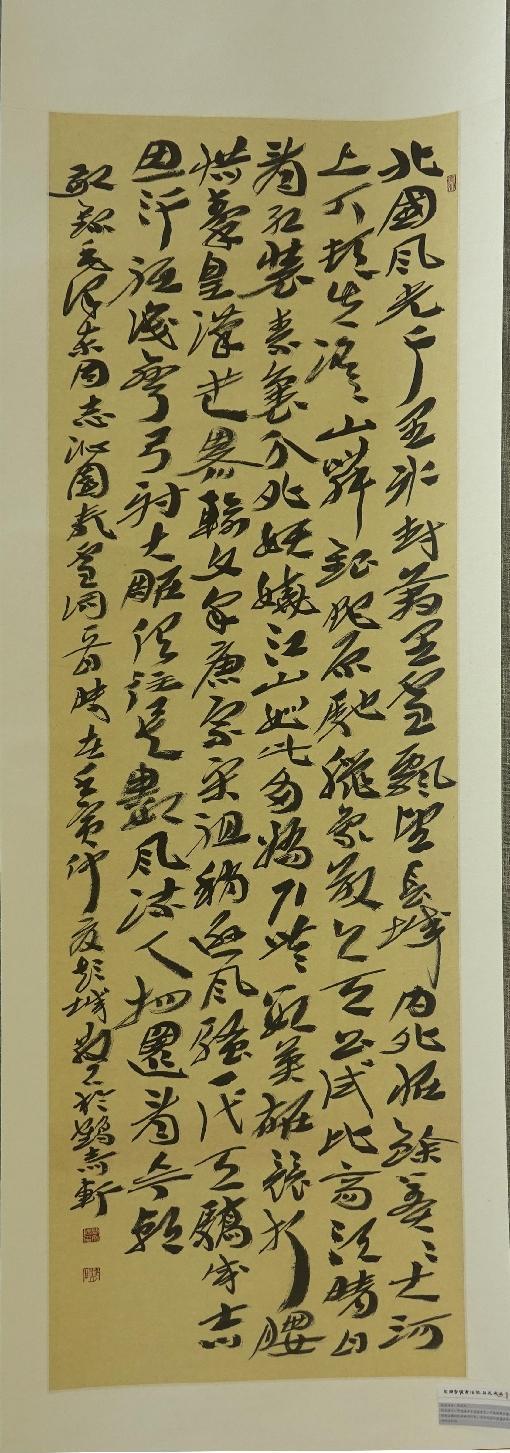 北國风光千里冰封萬里雪飘望長城内外惟餘莽々大河
上下頓失滔々山舞銀蛇原馳臘象欲與天公試比高須晴日
看紅裝素裹分外妖嬈江山如此多嬌引無數英雄競折腰
惜秦皇漢武略輸文采唐宗宋祖稍遜风騷一代天驕成吉
思汗祗識彎弓射大雕俱往矣數风流人物還看今朝
敬錄毛澤東同志沁園春雪詞一首時在壬寅仲夏彭城於志軒